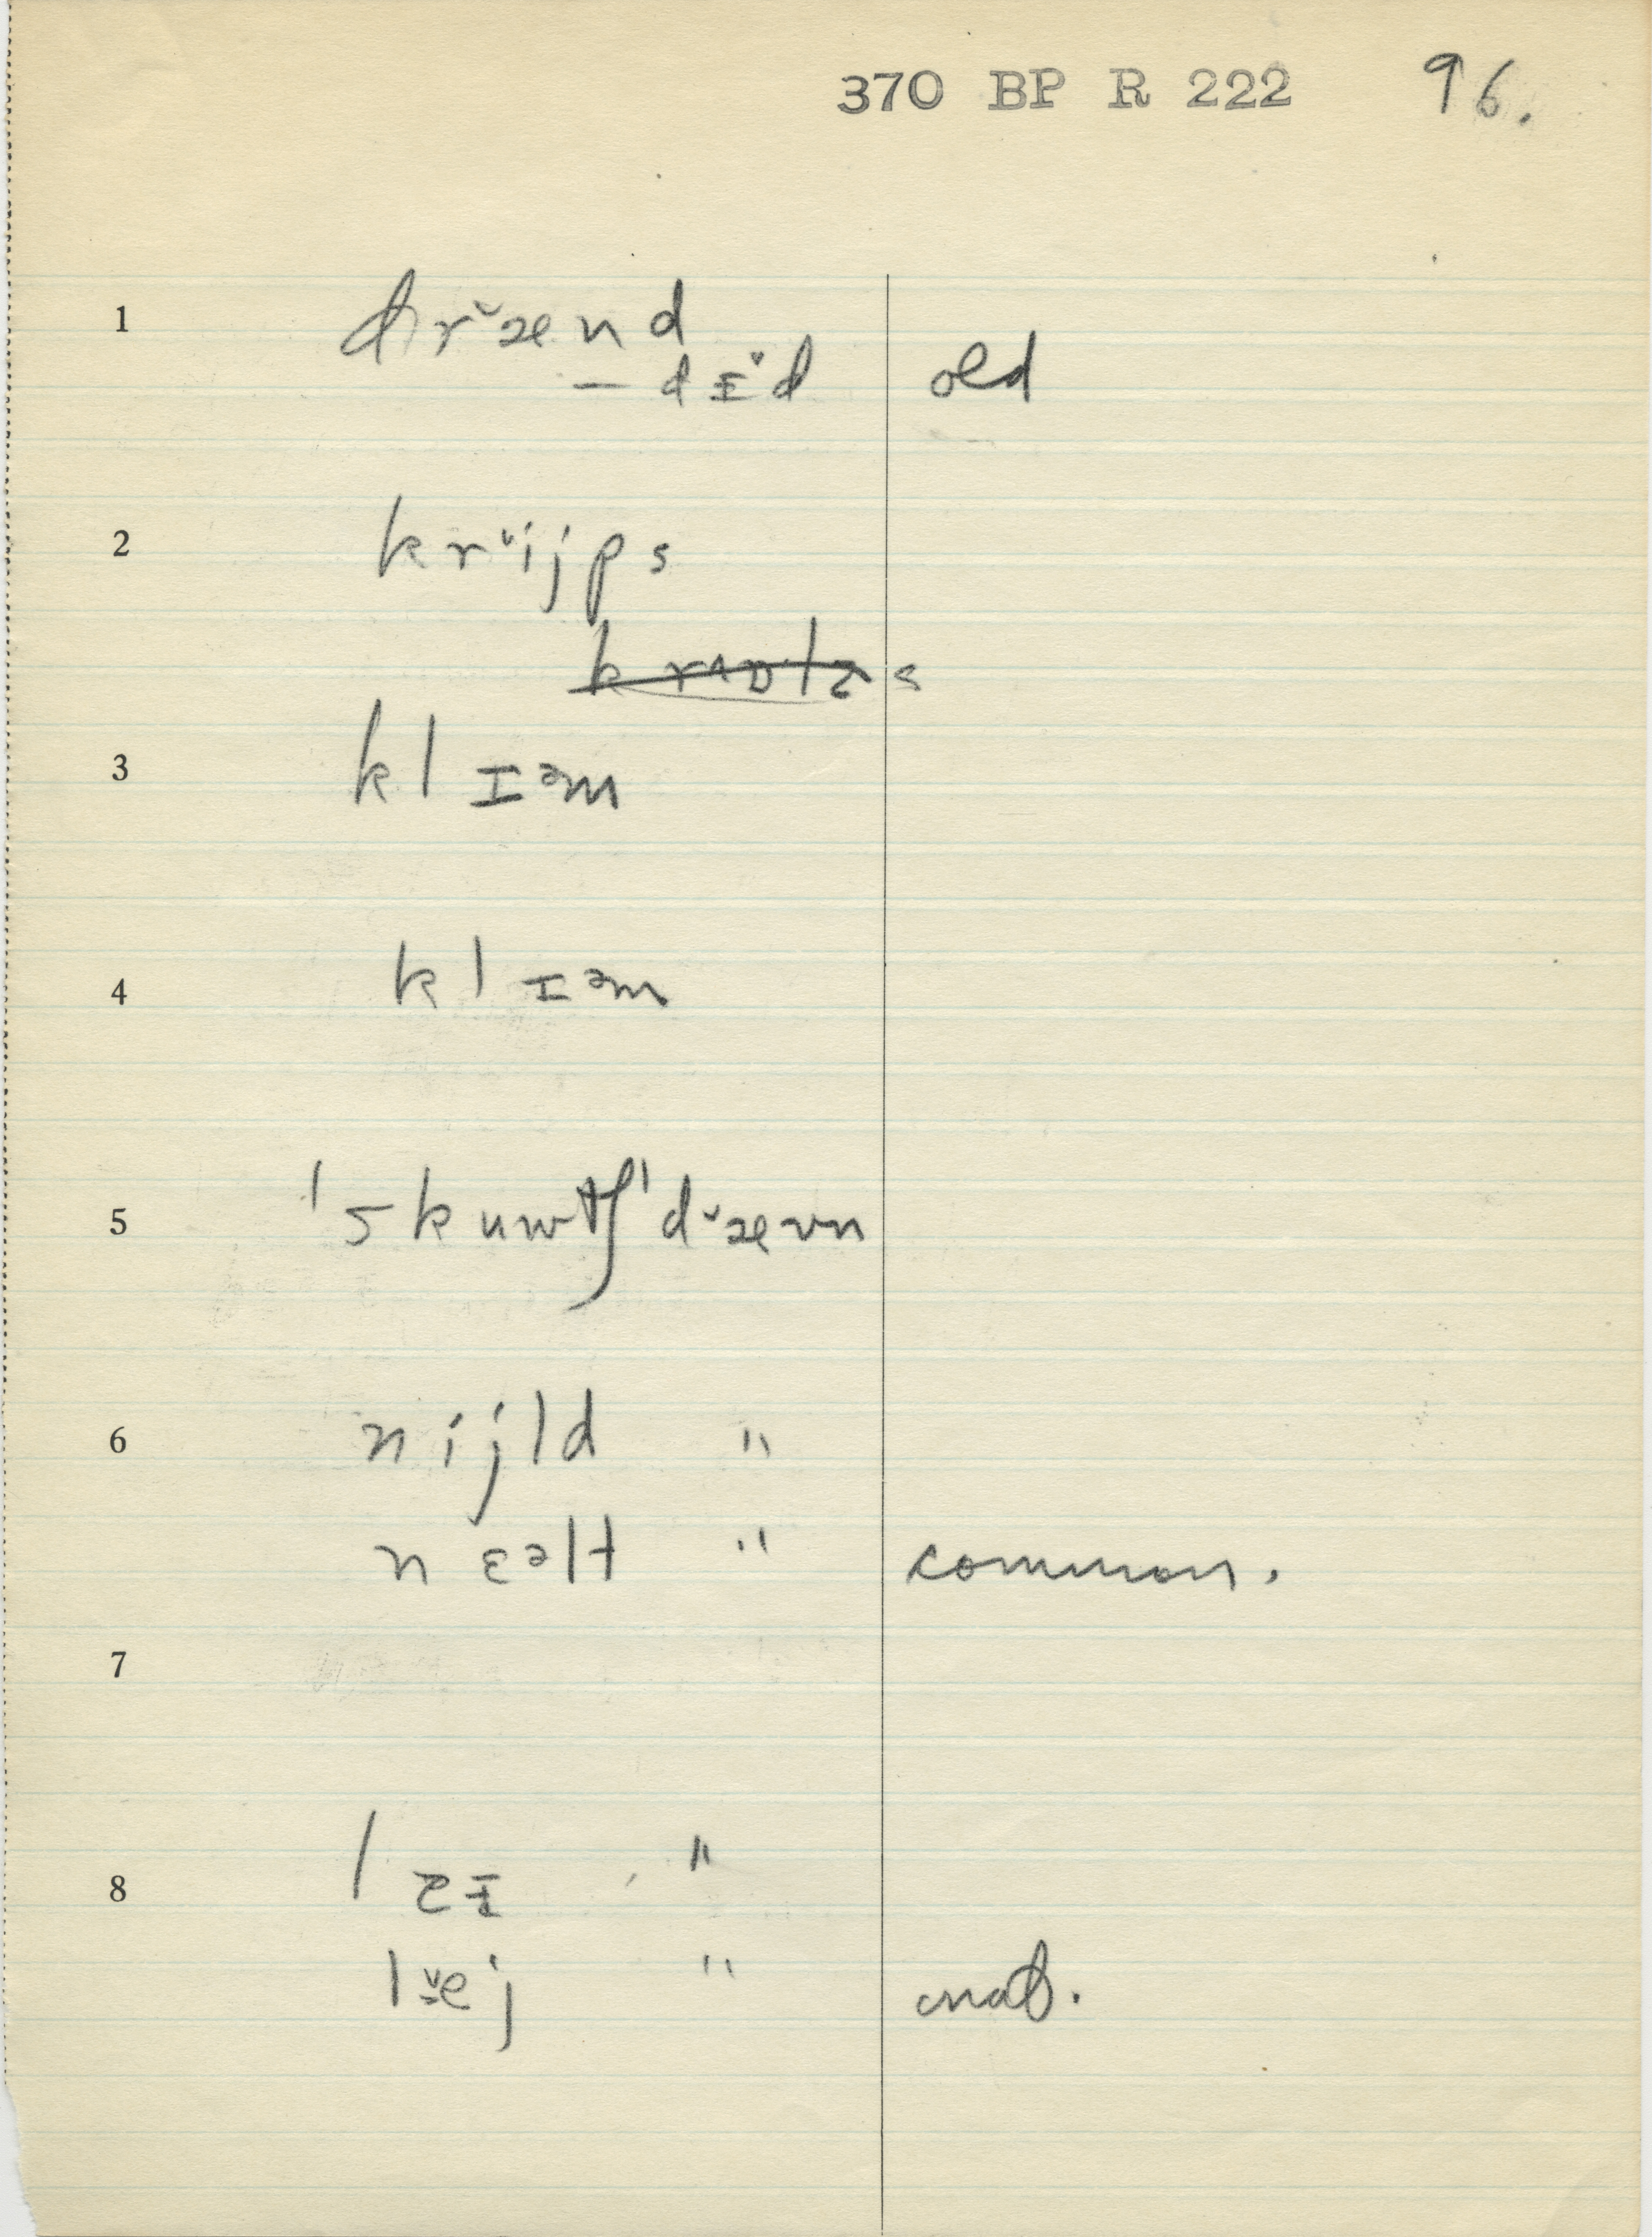 370 BP R 222 96.
1 drˇænd
– dɪˇd old
2 krˇijps
3 klɪəm
4 klɪəm
5 ˈskuwtʃˈdˇævn
6 nijld "
nɛəlt " common.
7
8 "
lˇej "